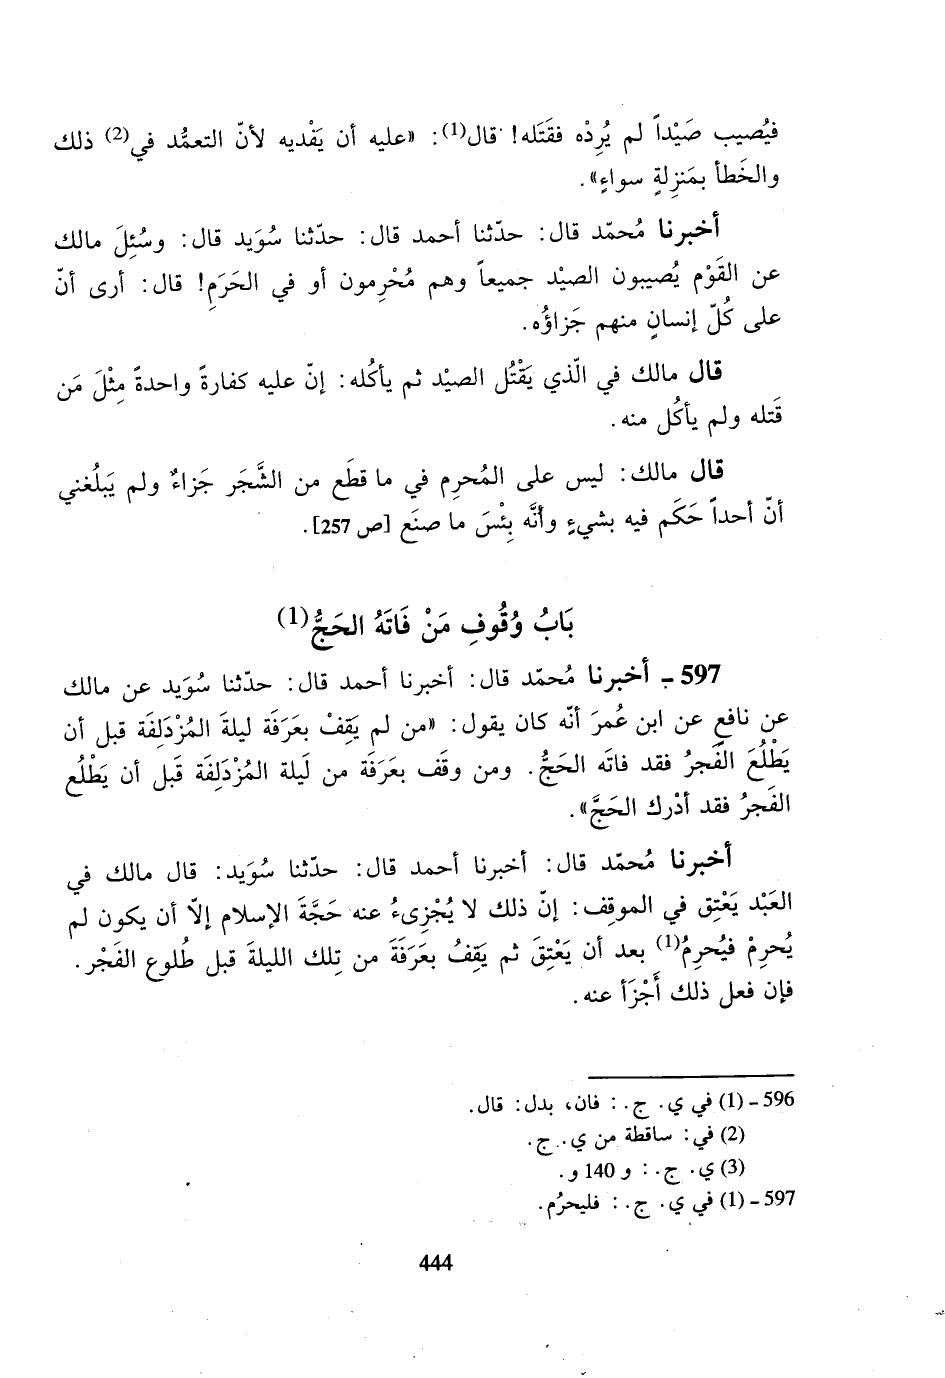 فيُصيب صَيْداً لم يُرِدْه فقَتَله! قال(1): «عليه أن يَفْديه لأنّ التعمُّد في(2) ذلك
والخَطأ بمَنزِلةٍ سواءٍ».
أخبرنا مُحمّد قال: حدّثنا أحمد قال: حدّثنا سُوَيد قال: وسُئِلَ مالك
عن القَوْم يُصيبون الصيْد جميعاً وهم مُحْرِمون أو في الحَرَمِ! قال: أرى أنّ
على كُلّ إنسانٍ منهم جَزاؤُه.
قال مالك في الّذي يَقْتُل الصيْد ثم يأكُله: إنّ عليه كفارةً واحدةً مِثْلَ مَن
قَتله ولم يأكُل منه.
قال مالك: ليس على المُحرِم في ما قطَع من الشَّجَر جَزاءٌ ولم يَبلُغني
أنّ أحداً حَكَم فيه بشيءٍ وأنَّه بِئْسَ ما صنَع [ص 257].
بَابُ وُقُوفِ مَنْ فَاتَهُ الحَجُّ(1)
597 ـ أخبرنا مُحمّد قال: أخبرنا أحمد قال: حدّثنا سُوَيد عن مالك
عن نافعٍ عن ابن عُمرَ أنّه كان يقول: «من لم يَقِفْ بعَرَفَة ليلةَ المُزْدَلِفَة قبل أن
يَطْلُعَ الفَجرُ فقد فاتَه الحَجُّ. ومن وقَف بعَرَفَة من لَيلة المُزْدَلِفَة قَبل أن يَطْلُع
الفَجرُ فقد أدْرك الحَجَّ».
أخبرنا مُحمّد قال: أخبرنا أحمد قال: حدّثنا سُوَيد: قال مالك في
العَبْد يَعْتِق في الموقِف: إنّ ذلك لا يُجْزِىءُ عنه حَجَّةَ الإسلام إلاّ أن يكون لم
يُحرِمْ فيُحرِمُ(1) بعد أن يَعْتِقَ ثم يَقِفُ بعَرَفَةَ من تِلك الليلةَ قبل طُلوع الفَجْر.
فإن فعل ذلك أَجْزَأ عنه.
596 ـ (1) في ي. ج.: فان، بدل: قال.
(2) في: ساقطة من ي. ج.
(3) ي. ج.: و 140 و.
597 ـ (1) في ي. ج.: فليحرُم.
444